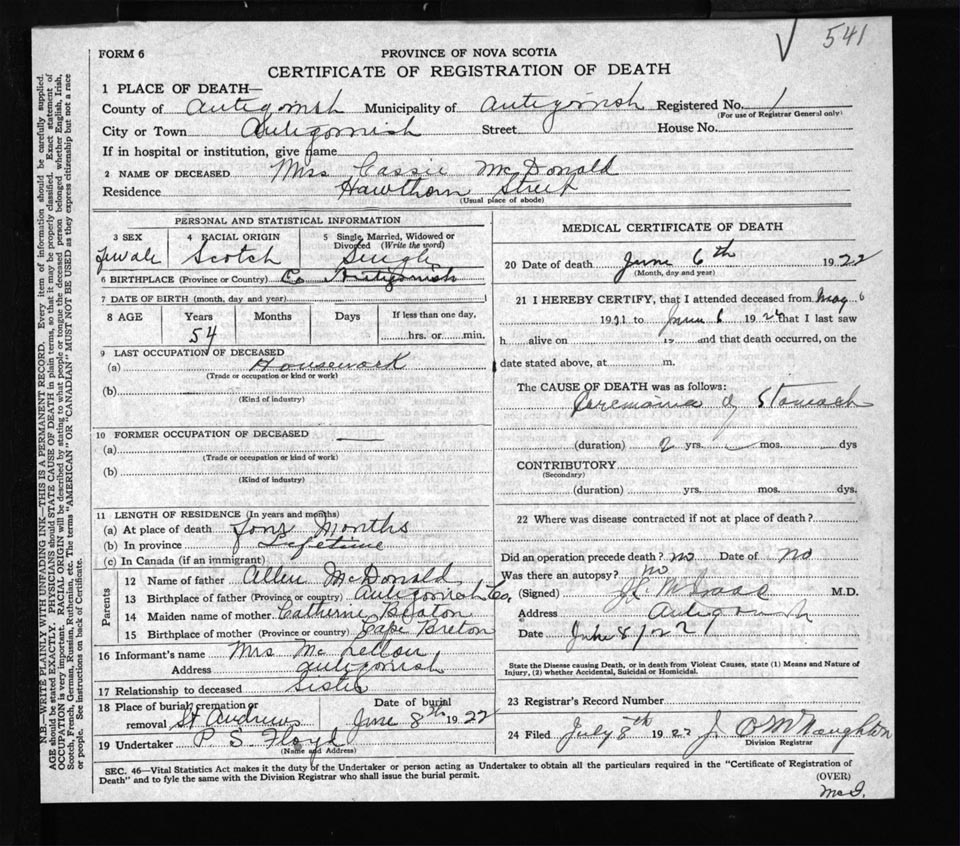 541
FORM 6
PROVINCE OF NOVA SCOTIA
CERTIFICATE OF REGISTRATION OF DEATH
1 PLACE OF DEATH—
County of Antigonish Municipality of Antigonish Registered No. 1
(For use of Registrar General only)
City or Town Antigonish Street House No.
If in hospital or institution, give name
2 NAME OF DECEASED Mrs Cassie McDonald
Residence Hawthorn Street
(Usual place of abode)
PERSONAL AND STATISTICAL INFORMATION
3 SEX 4 RACIAL ORIGIN 5 Single, Married, Widowed or Divorced (Write the word)
Female Scotch Single
6 BIRTHPLACE (Province or Country) Co Antigonish
7 DATE OF BIRTH (month, day and year)
8 AGE Years Months Days If less than one day,
54 hrs. or min.
9 LAST OCCUPATION OF DECEASED
(a) Housework
(Trade or occupation or kind or work)
(b)
(Kind of industry)
10 FORMER OCCUPATION OF DECEASED
(a)
(Trade or occupation or kind of work)
(b)
(Kind of industry)
11 LENGTH OF RESIDENCE (In years and months)
(a) At place of death four Months
(b) In province Lifetime
(c) In Canada (if an immigrant)
Parents
12 Name of father Allen McDonald
13 Birthplace of father (Province or country) Antigonish Co,
14 Maiden name of mother Catherine Beaton
15 Birthplace of mother (Province or country) Cape Breton
16 Informant's name Mrs McLellan
Address Antigonish
17 Relationship to deceased Sister
18 Place of burial, cremation or removal St Andrews Date of burial June 8th 1922
19 Undertaker P S Floyd
(Name and Address)
MEDICAL CERTIFICATE OF DEATH
20 Date of death June 6th 1922
(Month, day and year)
21 I HEREBY CERTIFY, that I attended deceased from May 6
1921 to June 6 1922 that I last saw
h alive on 19 and that death occurred, on the
date stated above, at m.
The CAUSE OF DEATH was as follows:
of Stomach
(duration) 2 yrs. mos. dys
CONTRIBUTORY
(Secondary)
(duration) yrs. mos. dys.
22 Where was disease contracted if not at place of death?
Did an operation precede death? no Date of no
Was there an autopsy? no
(Signed) M.D.
Address Antigonish
Date June 8/22
State the Disease causing Death, or in death from Violent Causes, state (1) Means and Nature of
Injury, (2) whether Accidental, Suicidal or Homicidal.
23 Registrar's Record Number
24 Filed July 8th 1922 J. O McNaughton
Division Registrar
SEC. 46—Vital Statistics Act makes it the duty of the Undertaker or person acting as Undertaker to obtain all the particulars required in the "Certificate of Registration of
Death" and to fyle the same with the Division Registrar who shall issue the burial permit.
(OVER)
N.B.—WRITE PLAINLY WITH UNFADING INK—THIS IS A PERMANENT RECORD. Every item of information should be carefully supplied.
AGE should be stated EXACTLY. PHYSICIANS should STATE CAUSE OF DEATH in plain terms, so that it may be properly classified. Exact statement of
OCCUPATION is very important. RACIAL ORIGIN will be described by stating to what people or tongue the deceased person belonged, whether English, Irish,
Scotch, French, German, Russian, Ruthenian, etc. The terms "AMERICAN" OR "CANADIAN" MUST NOT BE USED as they express citizenship but not a race
or people. See instructions on back of Certificate.